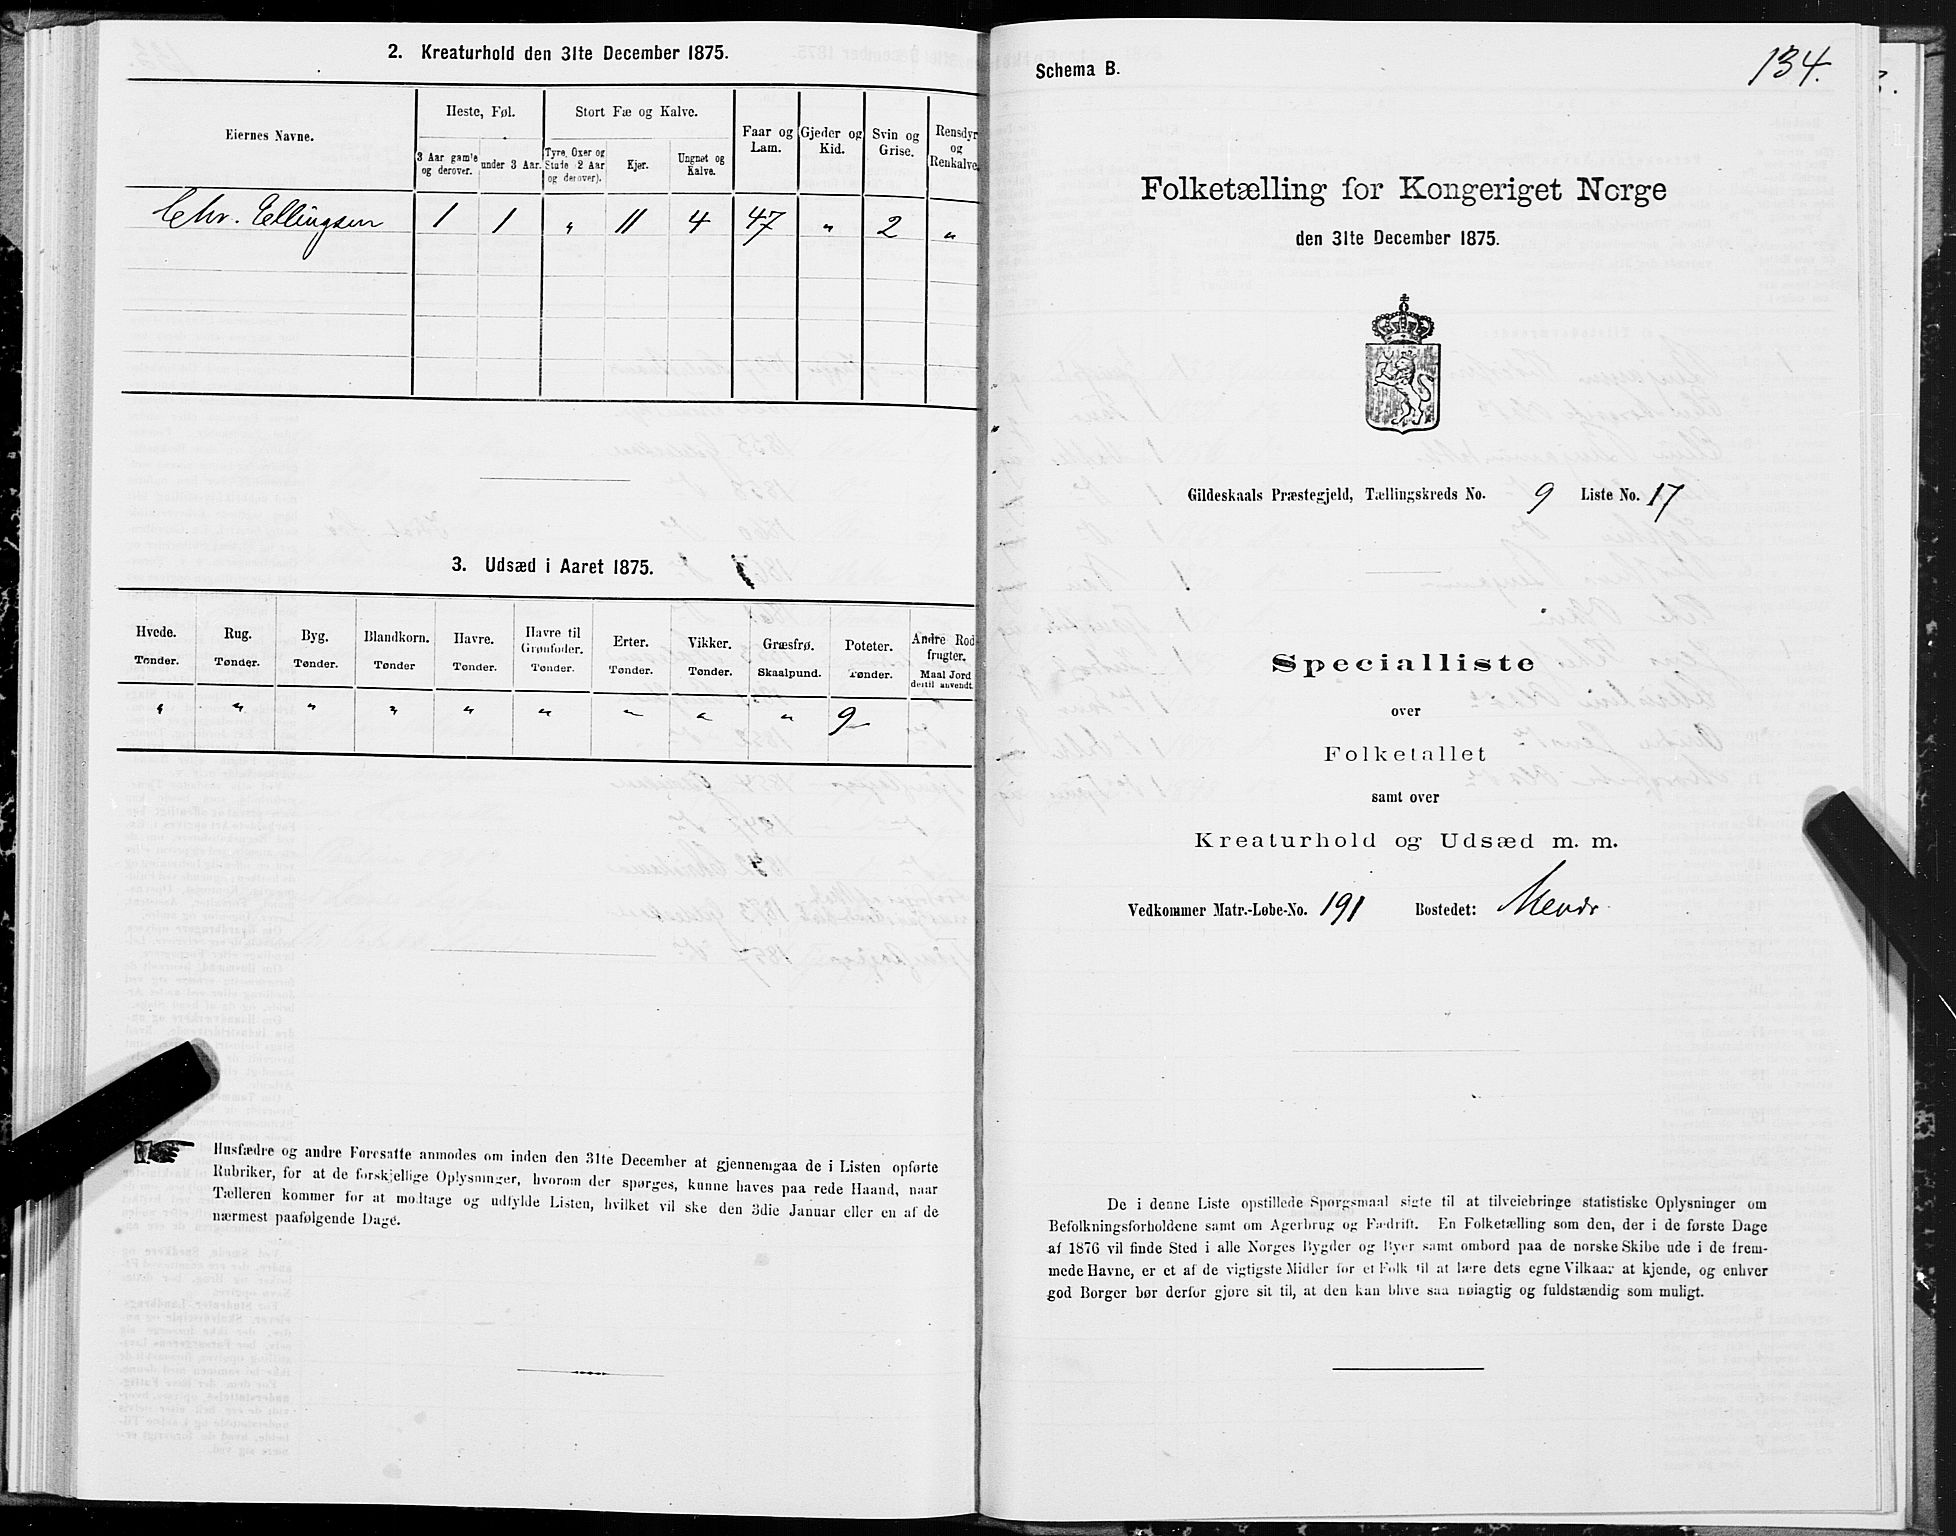 2. Kreaturhold den 31te December 1875.
Eiernes Navne.
Heste, Føl.
Stort Fæ og Kalve.
Faar og Lam.
Gjeder og Kid.
Svin og Grise.
Rensdyr og Renkalve.
3 Aar gamle og derover.
under 3 Aar.
Tyre, Oxer og Stude (2 Aar og derover).
Kjør.
Ungnøt og Kalve.
Chr. Ellingsen 1 1 " 11 4 47 " 2 "
3. Udsæd i Aaret 1875.
Hvede. Rug. Byg. Blandkorn. Havre. Havre til Grønfoder. Erter. Vikker. Græsfrø. Poteter. Andre Rodfrugter.
Tønder. Tønder. Tønder. Tønder Tønder. Tønder. Tønder. Tønder. Skaalpund. Tønder. Maal Jord dertil anvendt.
" " " " " " " " " 9
Husfædre og andre Foresatte anmodes om inden den 31te December at gjennemgaa de i Listen opførte
Rubriker, for at de forskjellige Oplysninger, hvorom der spørges, kunne haves paa rede Haand, naar
Tælleren kommer for at modtage og udfylde Listen, hvilket vil ske den 3die Januar eller en af de
nærmest paafølgende Dage.
134.
Schema B.
Folketælling for Kongeriget Norge
den 31te December 1875.
Gildeskaals Præstegjeld, Tællingskreds No. 9 Liste No. 17
Specialliste
over
Folketallet
samt over
Kreaturhold og Udsæd m. m.
Vedkommer Matr.-Løbe-No. 191 Bostedet:
De i denne Liste opstillede Spørgsmaal sigte til at tilveiebringe statistiske Oplysninger om
Befolkningsforholdene samt om Agerbrug og Fædrift. En Folketælling som den, der i de første Dage
af 1876 vil finde Sted i alle Norges Bygder og Byer samt ombord paa de norske Skibe ude i de frem-
mede Havne, er et af de vigtigste Midler for et Folk til at lære dets egne Vilkaar at kjende, og enhver
god Borger bør derfor gjøre sit til, at den kan blive saa nøiagtig og fuldstændig som muligt.